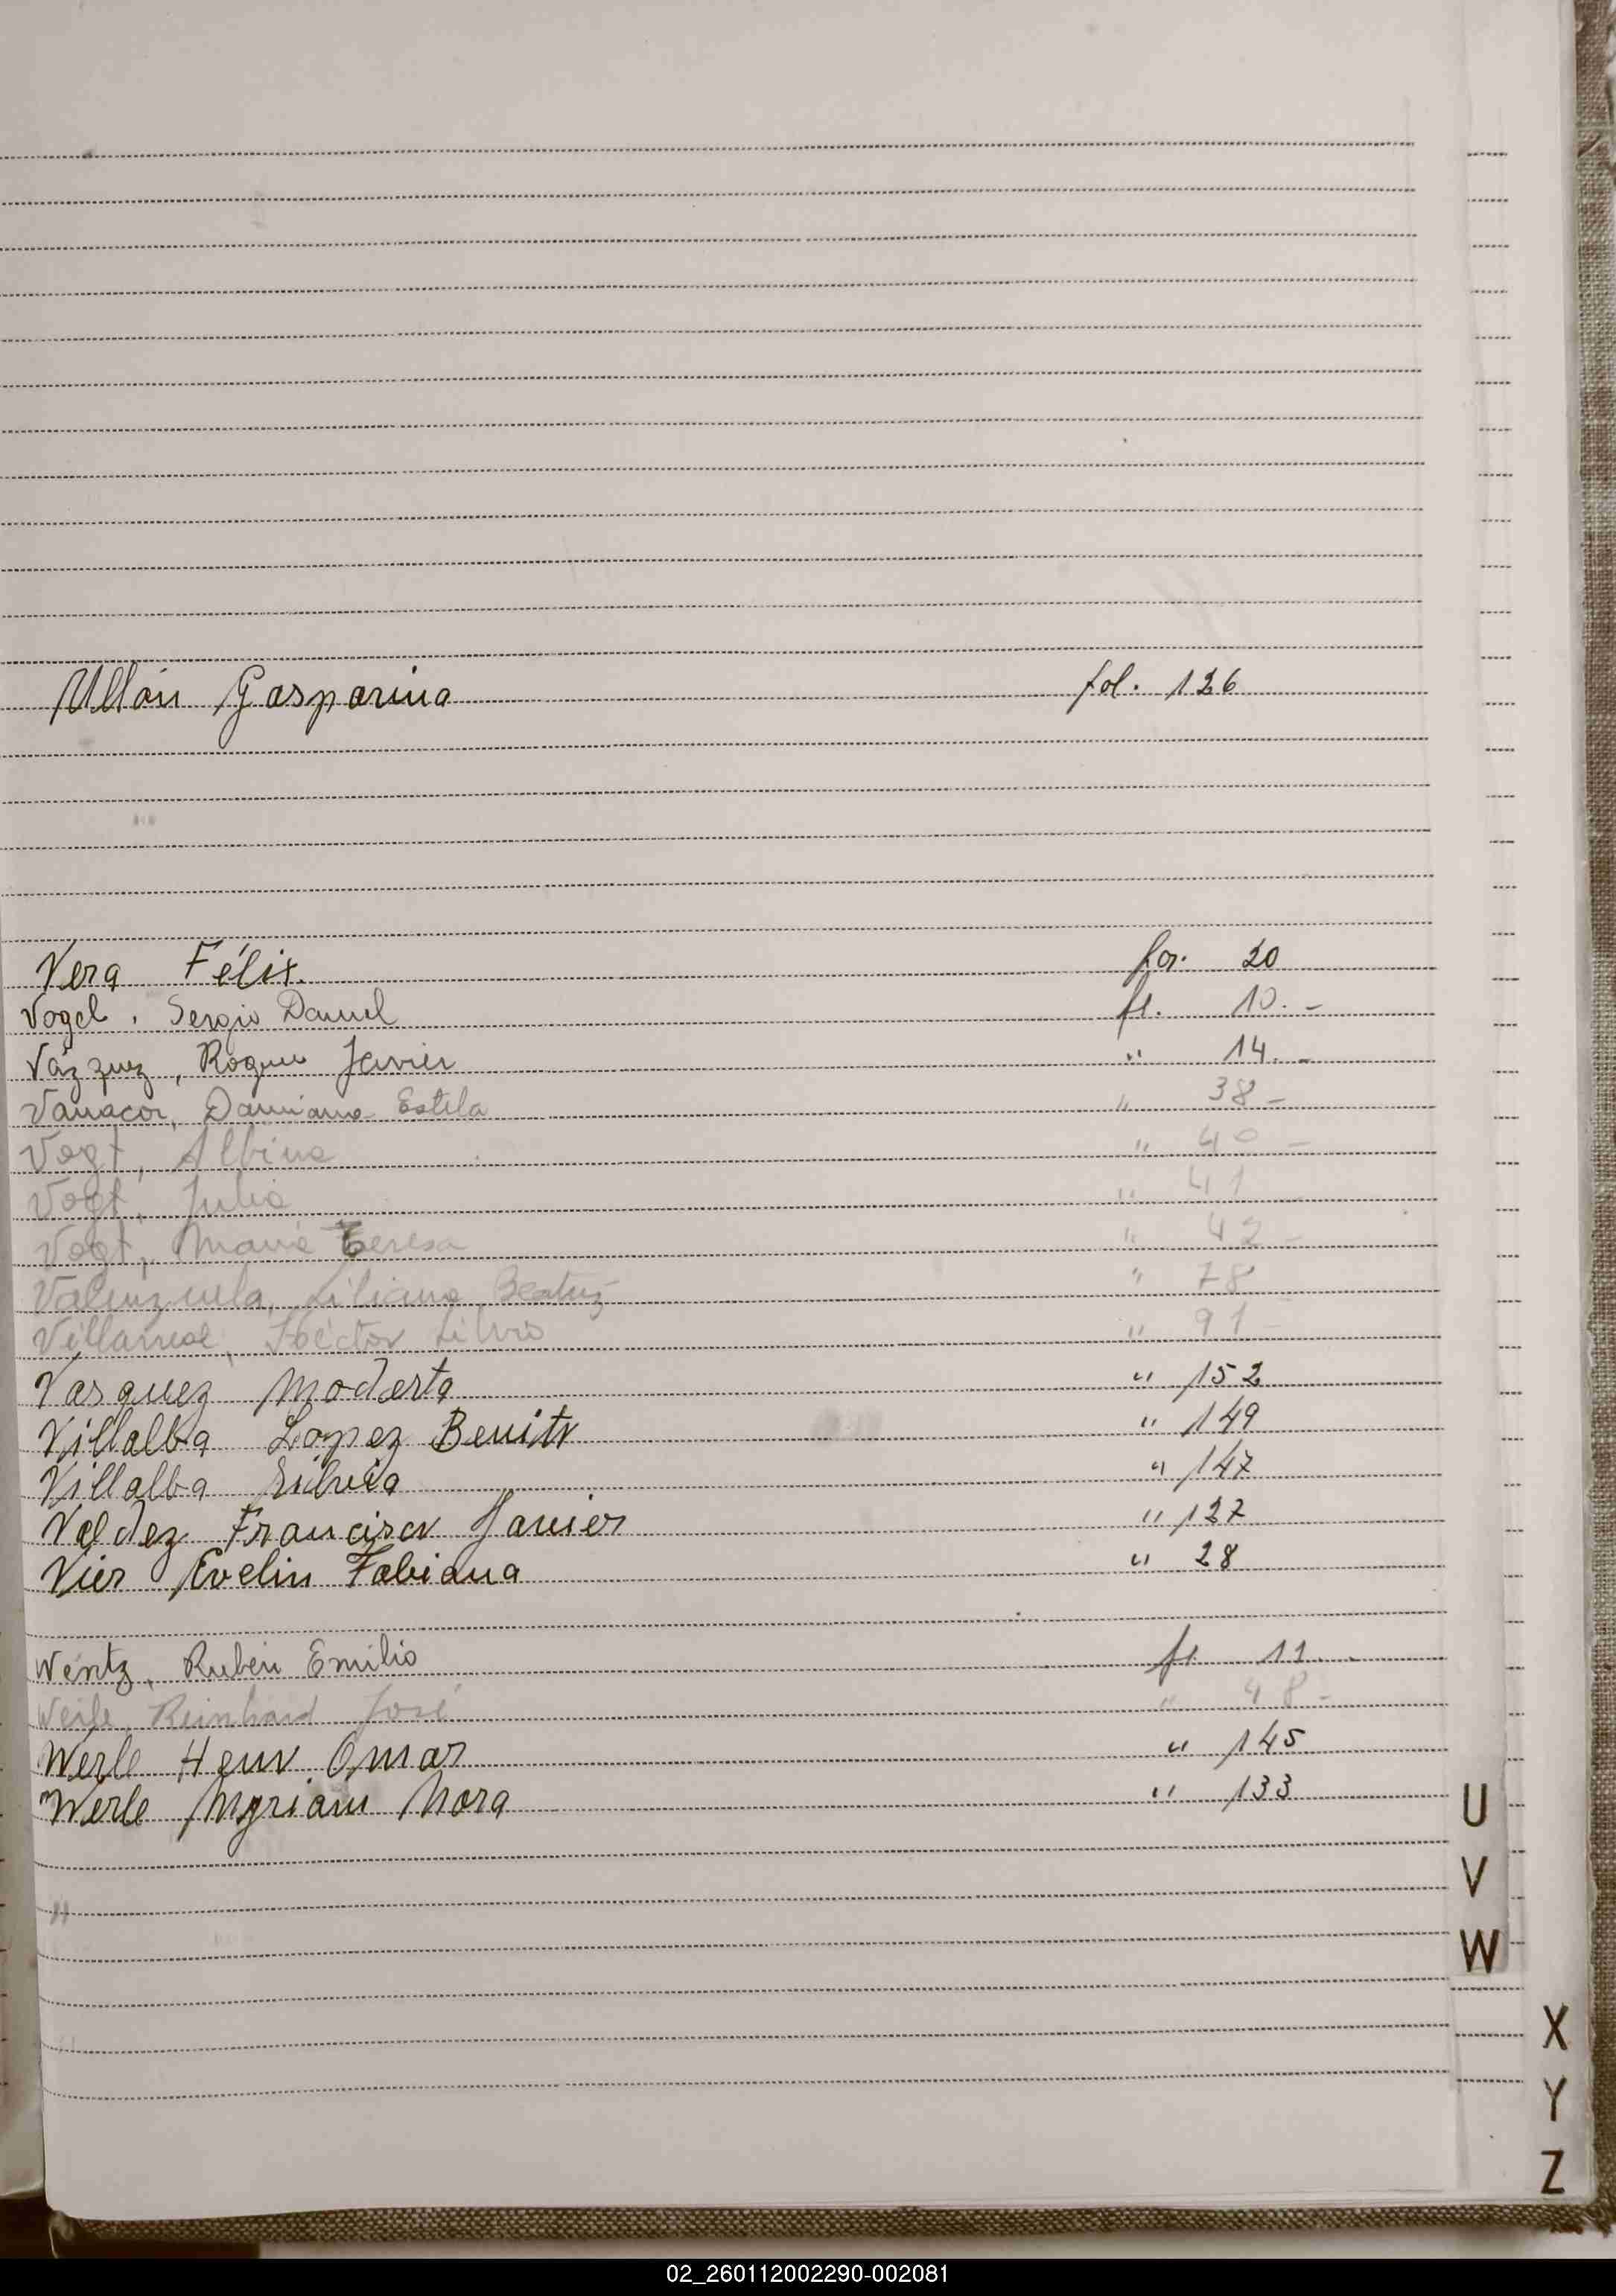 Ullón Gasparina fol. 126
Vera Félix. for. 20
Vogel, Sergio Daniel fl. 10. -
Vázquez, Roque Javier " 14. -
Vanacor, Damiana Estela " 38 -
Vogt, Albina " 40 -
Vogt, Julia " 41
Vogt, María Teresa " 42 -
Valenzuela, Liliana Beatriz " 78
Villarreal, Héctor Silvio " 91 -
Vasquez Modesta " 152
Villalba Lopez Benito " 149
Villalba Silvia " 147
Valdez Francisco Javier " 127
Vier Evelin Fabiana " 28
Wentz, Rubén Emilio fl. 11. -
Werle, Reinhard José " 48 -
Werle Omar " 145
Werle Myriam Nora " 133
"
U
V
W
X
Y
Z
02_260112002290-002081